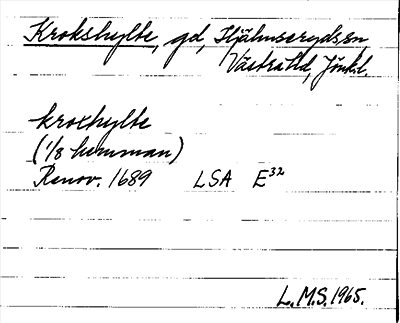 Krokshylte, gd, Hjälmseryds sn,
Västra hd, Jönk.l.
krochylte
(1/8 hemman)
Renov. 1689 LSA E32
L.M.S. 1965.